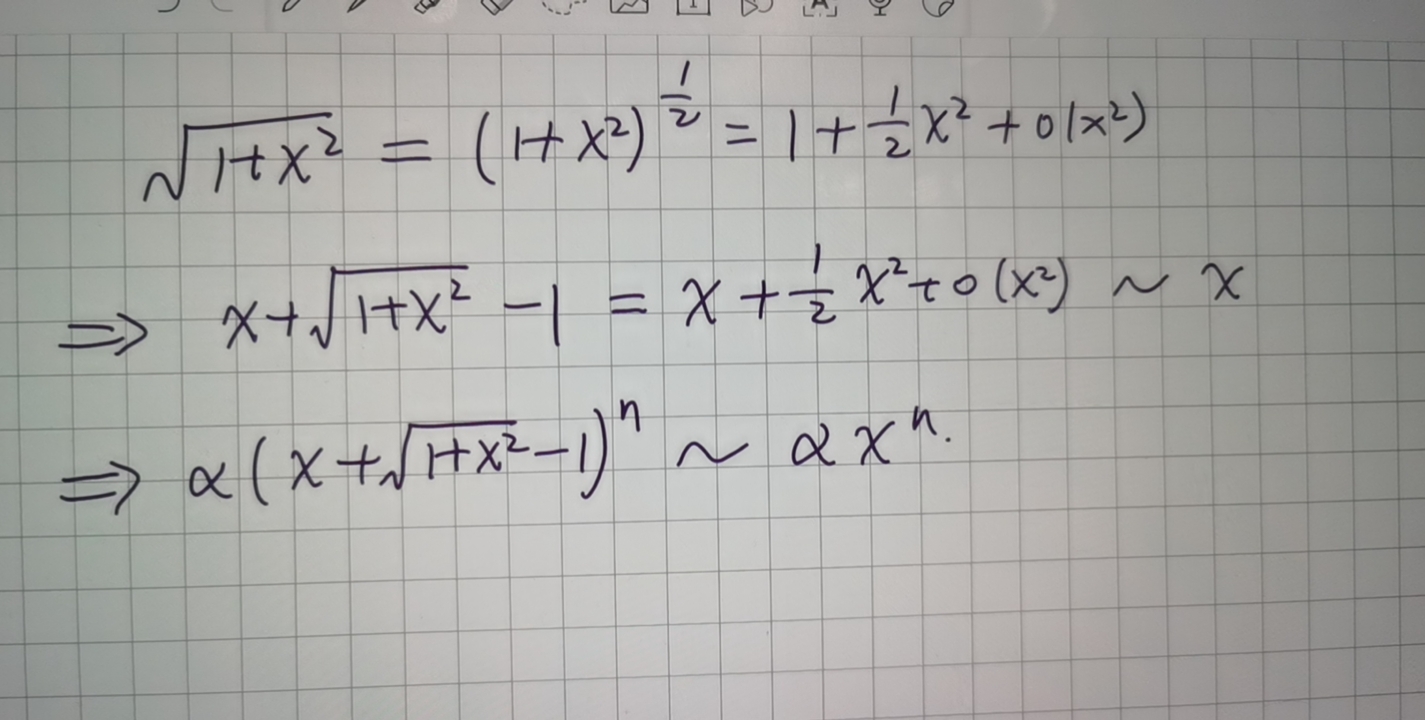 √(1+x²) = (1+x²)^(1/2) = 1 + 1/2 x² + o(x²)
⇒ x+√(1+x²) −1 = x + 1/2 x² + o(x²) ~ x
⇒ α(x+√(1+x²)−1)ⁿ ~ αxⁿ.